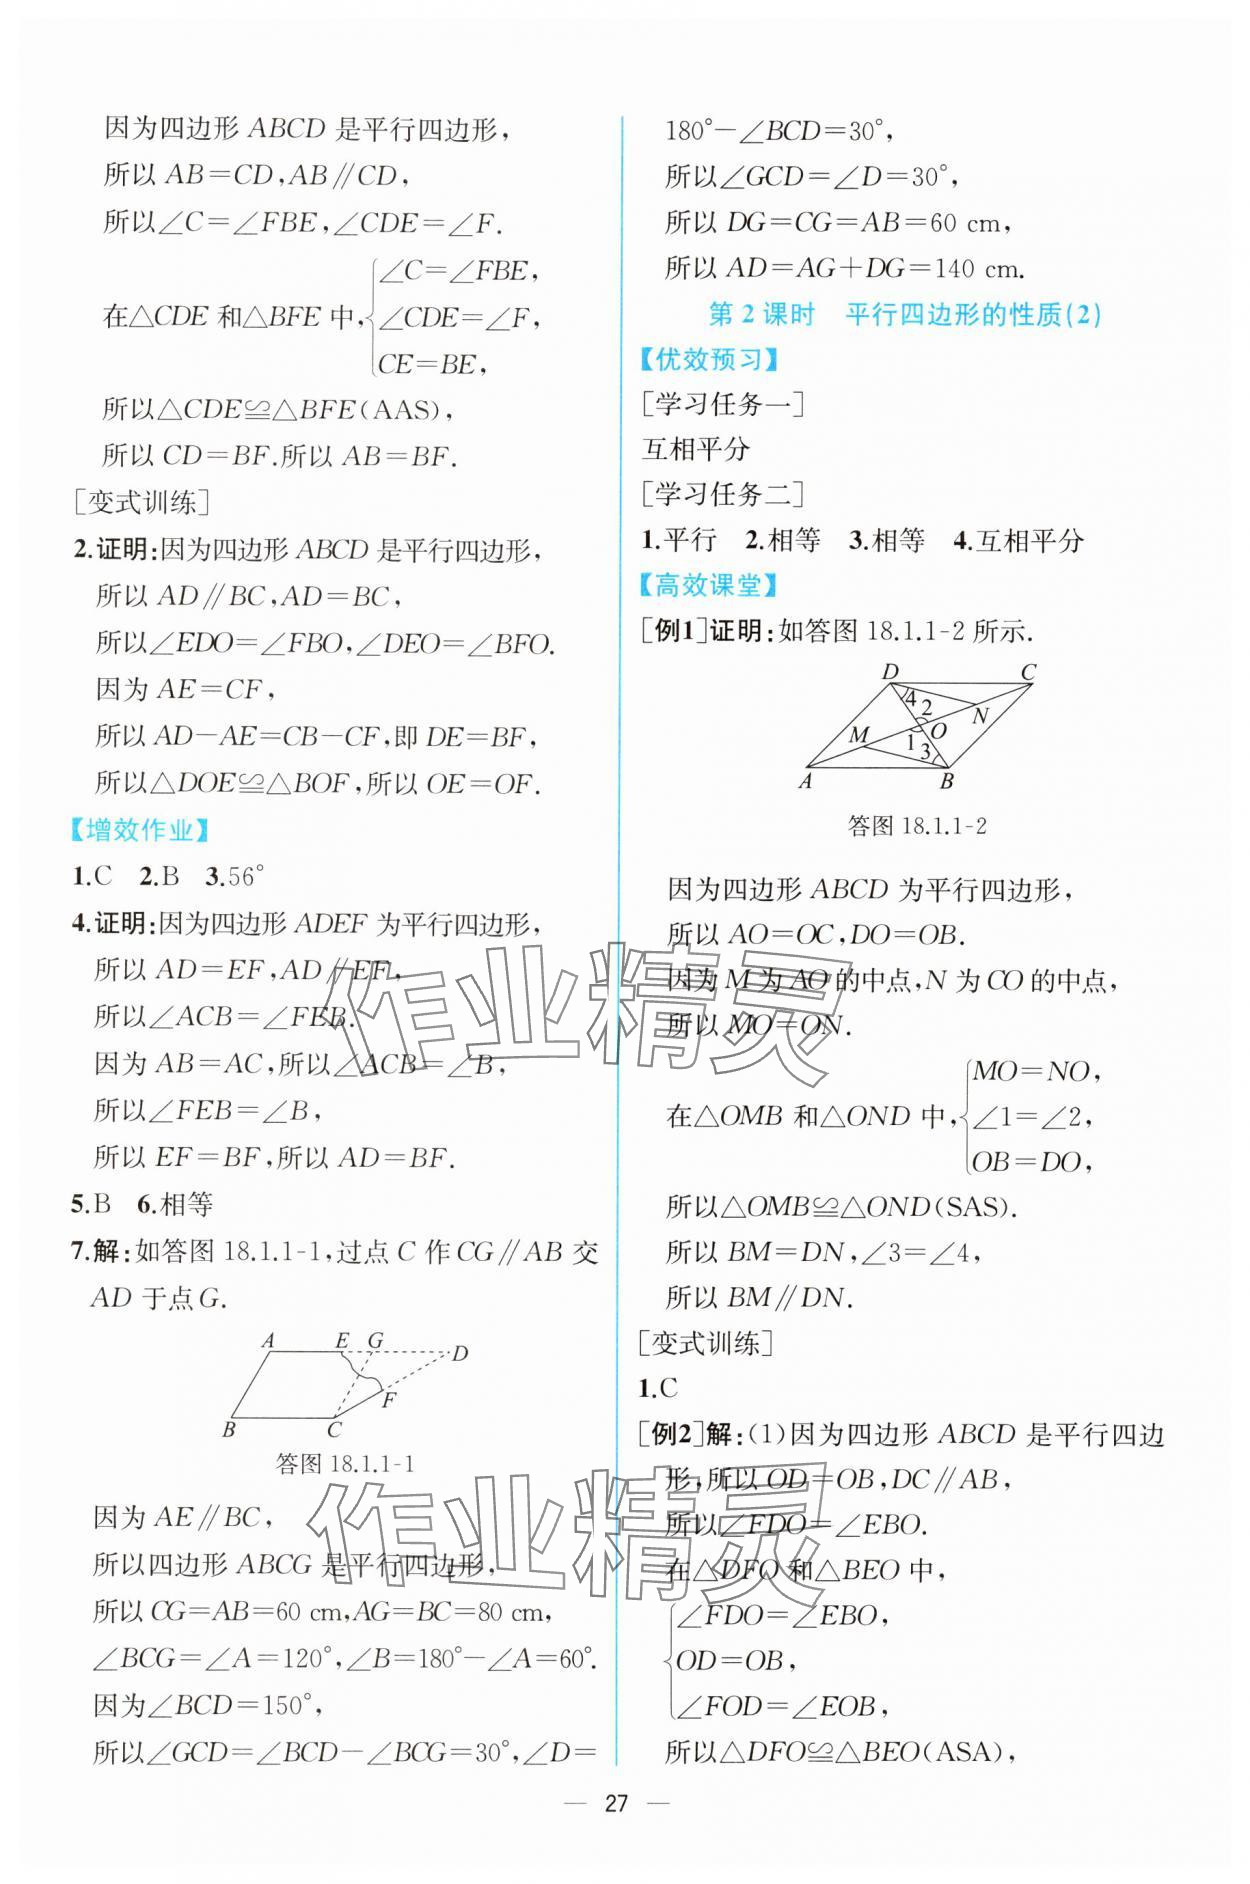 因为四边形 ABCD 是平行四边形，
所以 AB=CD,AB∥CD,
所以∠C=∠FBE,∠CDE=∠F.
∠C=∠FBE,
在△CDE 和△BFE 中,
∠CDE=∠F,
CE=BE,
所以△CDE≌△BFE(AAS),
所以 CD=BF.所以 AB=BF.
[变式训练]
2.证明:因为四边形 ABCD 是平行四边形，
所以 AD∥BC,AD=BC,
所以∠EDO=∠FBO,∠DEO=∠BFO.
因为 AE=CF,
所以 AD-AE=CB-CF,即 DE=BF,
所以△DOE≌△BOF,所以 OE=OF.
【增效作业】
1.C 2.B 3.56°
4.证明:因为四边形 ADEF 为平行四边形，
所以 AD=EF,AD∥EF,
所以∠ACB=∠FEB.
因为 AB=AC,所以∠ACB=∠B,
所以∠FEB=∠B,
所以 EF=BF,所以 AD=BF.
5.B 6.相等
7.解:如答图 18.1.1-1,过点 C 作 CG∥AB 交
AD 于点 G.
A E G D
F
B C
答图 18.1.1-1
因为 AE∥BC,
所以四边形 ABCG 是平行四边形，
所以 CG=AB=60 cm,AG=BC=80 cm,
∠BCG=∠A=120°,∠B=180°-∠A=60°.
因为∠BCD=150°,
所以∠GCD=∠BCD-∠BCG=30°,∠D=
180°-∠BCD=30°,
所以∠GCD=∠D=30°,
所以 DG=CG=AB=60 cm,
所以 AD=AG+DG=140 cm.
第 2 课时 平行四边形的性质(2)
【优效预习】
[学习任务一]
互相平分
[学习任务二]
1.平行 2.相等 3.相等 4.互相平分
【高效课堂】
[例1]证明:如答图 18.1.1-2 所示.
D C
4 2 N
M 1 O
3
A B
答图 18.1.1-2
因为四边形 ABCD 为平行四边形，
所以 AO=OC,DO=OB.
因为 M 为 AO 的中点,N 为 CO 的中点，
所以 MO=ON.
MO=NO,
在△OMB 和△OND 中,
∠1=∠2,
OB=DO,
所以△OMB≌△OND(SAS).
所以 BM=DN,∠3=∠4,
所以 BM∥DN.
[变式训练]
1.C
[例2]解:(1)因为四边形 ABCD 是平行四边
形,所以 OD=OB,DC∥AB,
所以∠FDO=∠EBO.
在△DFO 和△BEO 中,
∠FDO=∠EBO,
OD=OB,
∠FOD=∠EOB,
所以△DFO≌△BEO(ASA),
— 27 —
作业精灵
作业精灵